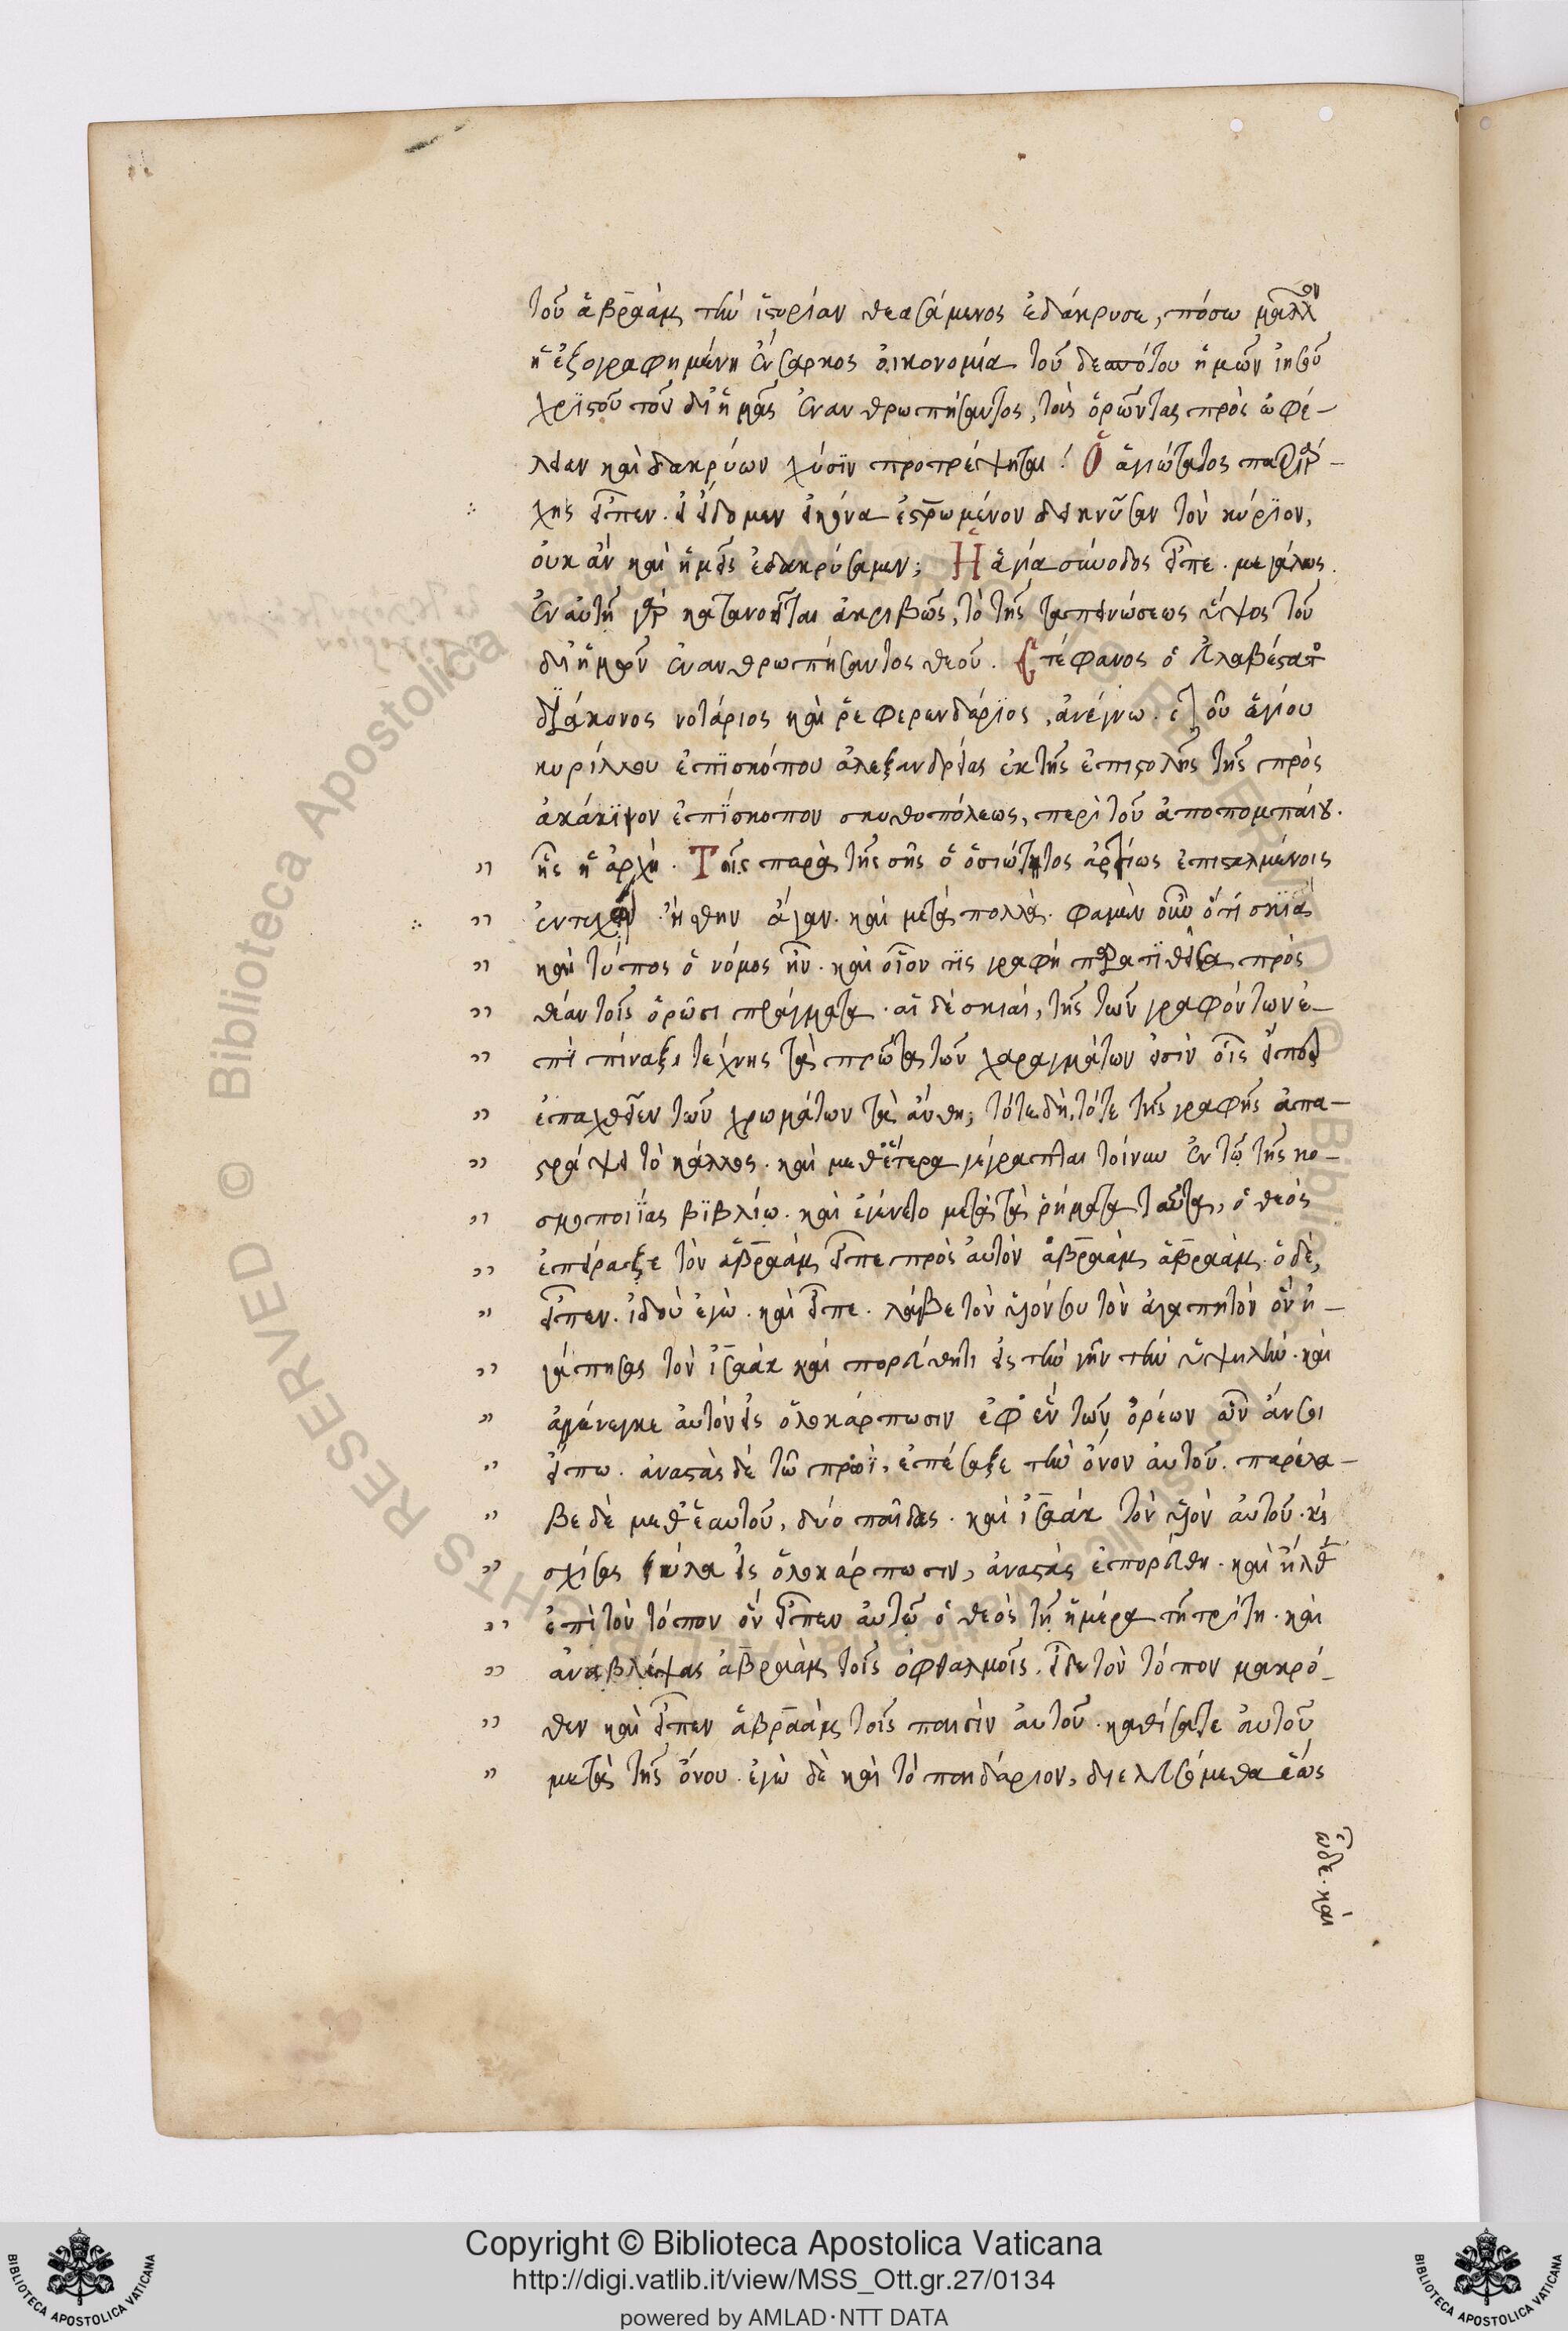 τοῦ ἀβραὰμ τὴν ἱστορίαν θεασάμενος ἐδάκρυσε, πόσω μᾶλλον
ἡ ἐξογραφημένη ἔνσαρκος οἰκονομία τοῦ δεσπότου ἡμῶν ἰησοῦ
χριστοῦ τοῦ δι ἡμᾶς ἐνανθρωπήσαντος, τοὺς ὁρῶντας πρὸς ὠφέ-
λειαν καὶ δακρύων χύσϊν προτρέψηται! Ὁ ἁγιώτατος πατριάρ-
χης εἶπεν. εἰ εἴδομεν εἰκόνα ἐστρωμένον δεικνῦσαν τὸν κύριον,
οὐκ ἂν καὶ ἡμεῖς ἐδακρύσαμεν; Ἡ ἁγία σύνοδος εἶπε. μεγάλως.
ἐν αὐτῇ γὰρ κατανοεῖται ἀκριβῶς, τὸ τῆς ταπεινώσεως ὕψος τοῦ
δι ἡμῶν ἐνανθρωπήσαντος θεοῦ. Στέφανος ὁ
διάκονος νοτάριος καὶ ῥεφερενδάριος, ἀνέγνω. τοῦ ἁγίου
κυρίλλου ἐπϊσκόπου ἀλεξανδρείας ἐκ τῆς ἐπιστολῆς τῆς πρὸς
ἀκάκϊον ἐπίσκοπον σκυθοπόλεως, περὶ τοῦ ἀποπομπαίου.
" ἧς ἡ ἀρχὴ. Τοῖς παρὰ τῆς σῆς ὁσιότητος ἀρτίως ἐπισταλμένοις
" ἐντυχὼν ἥσθην ἄγαν. καὶ μετὰ πολλὰ. φαμὲν οὖν ὅτι σκϊὰ
" καὶ τύπος ὁ νόμος ἦν. καὶ οἷον τὶς γραφὴ παρατϊθεῖσα πρὸς
" θέαν τοῖς ὁρῶσι πράγματα. αἱ δὲ σκιαὶ, τῆς τῶν γραφόντων ἐ-
" πὶ πίναξι τέχνης τὰ πρῶτα τῶν χαραγμάτων εἰσὶν οἷς εἴπερ
" ἐπαχθεῖεν τῶν χρωμάτων τὰ ἄνθη, τότε δὴ, τότε τῆς γραφῆς ἀπα-
" στράψει τὸ κάλλος. καὶ μεθέτερα γέγραπται τοίνυν ἐν τῷ τῆς κο-
" σμοποιΐας βϊβλίω. καὶ ἐγένετο μετὰ τὰ ῥήματα ταῦτα, ὁ θεὸς
" ἐπείραξε τὸν ἀβραὰμ εἶπε πρὸς αὐτὸν ἀβραὰμ ἀβραὰμ. ὁ δὲ,
" εἶπεν. ἰδοὺ ἐγὼ. καὶ εἶπε. λάβε τὸν υἱόν σου τὸν ἀγαπητὸν ὃν ἠ-
" γάπησας τὸν ἰσαὰκ καὶ πορεύθητι εἰς τὴν γῆν τὴν ὑψηλὴν. καὶ
" ἀνένεγκε αὐτὸν εἰς ὁλοκάρπωσιν ἐφ ἓν τῶν ὀρέων ὧν ἄν σοι
" εἴπω. ἀναστὰς δὲ τῶ πρωῒ, ἐπέσαξε τὴν ὄνον αὐτοῦ. παρέλα-
" βε δὲ μεθ ἑαυτοῦ, δύο παῖδας. καὶ ἰσαὰκ τὸν υἱὸν αὐτοῦ. καὶ
" σχίσας ξύλα εἰς ὁλοκάρπωσιν, ἀναστὰς ἐπορεύθη. καὶ ἦλθεν
" ἐπὶ τὸν τόπον ὃν εἶπεν αὐτῷ ὁ θεὸς τῇ ἡμέρα τῇ τρίτη. καὶ
" ἀναβλέψας ἀβραὰμ τοῖς ὀφθαλμοῖς. εἶδε τὸν τόπον μακρό-
" θεν καὶ εἶπεν ἀβραὰμ τοῖς παισὶν αὐτοῦ. καθίσατε αὐτοῦ
" μετὰ τῆς ὄνου. ἐγὼ δὲ καὶ τὸ παιδάριον, διελευσόμεθα ἕως
ὧδε. καὶ
Biblioteca Apostolica Vaticana ALL RIGHTS RESERVED ©
Copyright © Biblioteca Apostolica Vaticana
http://digi.vatlib.it/view/MSS_Ott.gr.27/0134
powered by AMLAD·NTT DATA
BIBLIOTECA APOSTOLICA VATICANA
BIBLIOTECA APOSTOLICA VATICANA